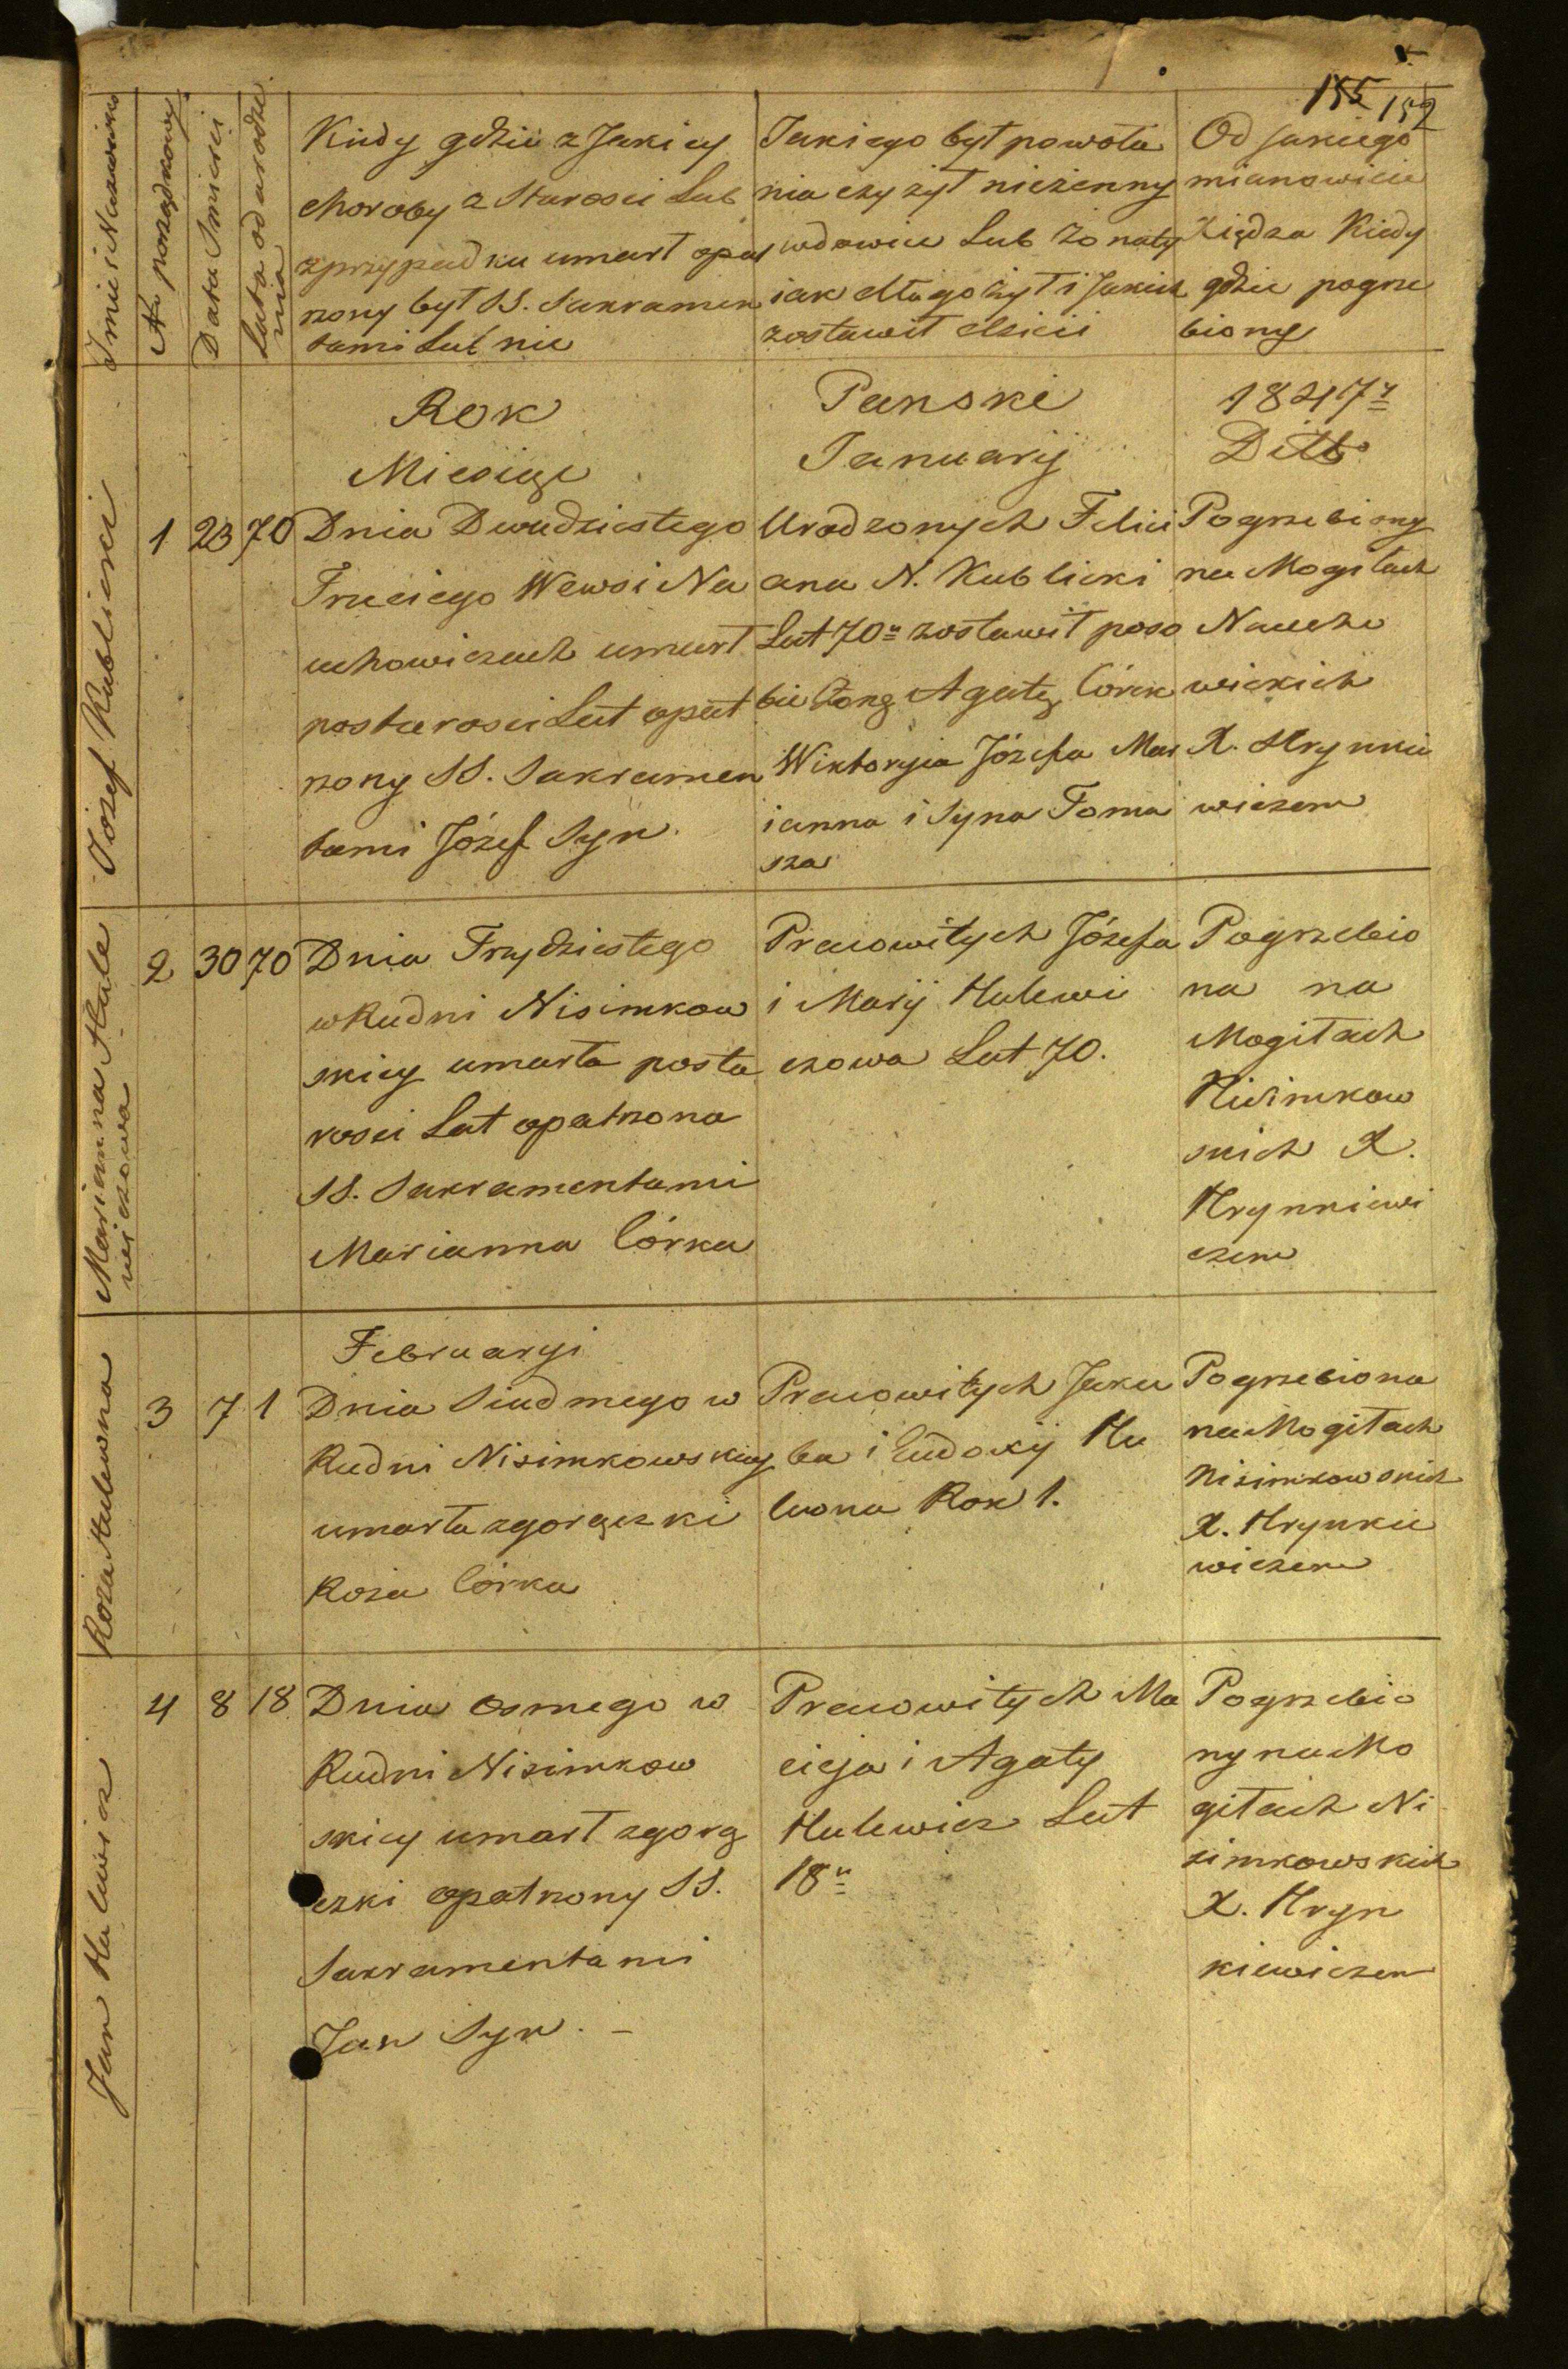 155 152
Imie i Nazwisko
N. porządkowy
Data Smierci
Lata od urodze
nia
Kiedy gdzie z Jakiey
choroby z Starosci Lub
zprzypadku umarł opat
rzony był SS. Sakramen
tami Lub nie
Jakiego był powoła
nia czy żył nieżenny
wdowiec Lub Żonaty
iak długo żył i Jakich
zostawił dzieci
Od jakiego
mianowicie
Xiędza Kiedy
gdzie pogrze
biony
Rok Panski 1847
Miesiąc January Ditto
Jozef Kublicki
1 23 70
Dnia Dwudziestego
Trzeciego Wewsi Na
uchowiczach umarł
postarosci Lat opat
rzony SS. Sakramen
tami Józef Syn.
Urodzonych Felici
ana N. Kublicki
Lat 70 zostawił poso
bie Żonę Agatę Córek
Wiktoryia Józefa Mar
ianna i Syna Toma
sza
Pogrzebiony
na Mogiłach
Naucho
wickich
X. Hrynkie
wiczem
Marianna Hule
wiczowa
2 30 70
Dnia Trzydziestego
wRudni Nisimkow
skiey umarła posta
rosci Lat opatrzona
SS. Sakramentami
Marianna Córka
Pracowitych Józefa
i Marij Hulewi
czowa Lat 70.
Pogrzebio
na na
Mogiłach
Nisimkow
skich X.
Hrynkiewi
czem
Roza Hulewna
Februaryi
3 7 1
Dnia Siudmego w
Rudni Nisimkowskiey
umarła zgorączki
Roza Córka
Pracowitych Jaku
ba i Eudoxij Hu
lwona Rok 1.
Pogrzebiona
na Mogiłach
Nisimkowskich
X. Hrynkie
wiczem
Jan Hulewicz
4 8 18
Dnia osmego w
Rudni Nisimkow
skiey umarł zgorą
czki opatrzony SS.
Sakramentami
Jan Syn. –
Pracowitych Ma
cieja i Agaty
Hulewicz Lat
18
Pogrzebio
ny na Mo
giłach Ni
simkowskich
X. Hryn
kiewiczem